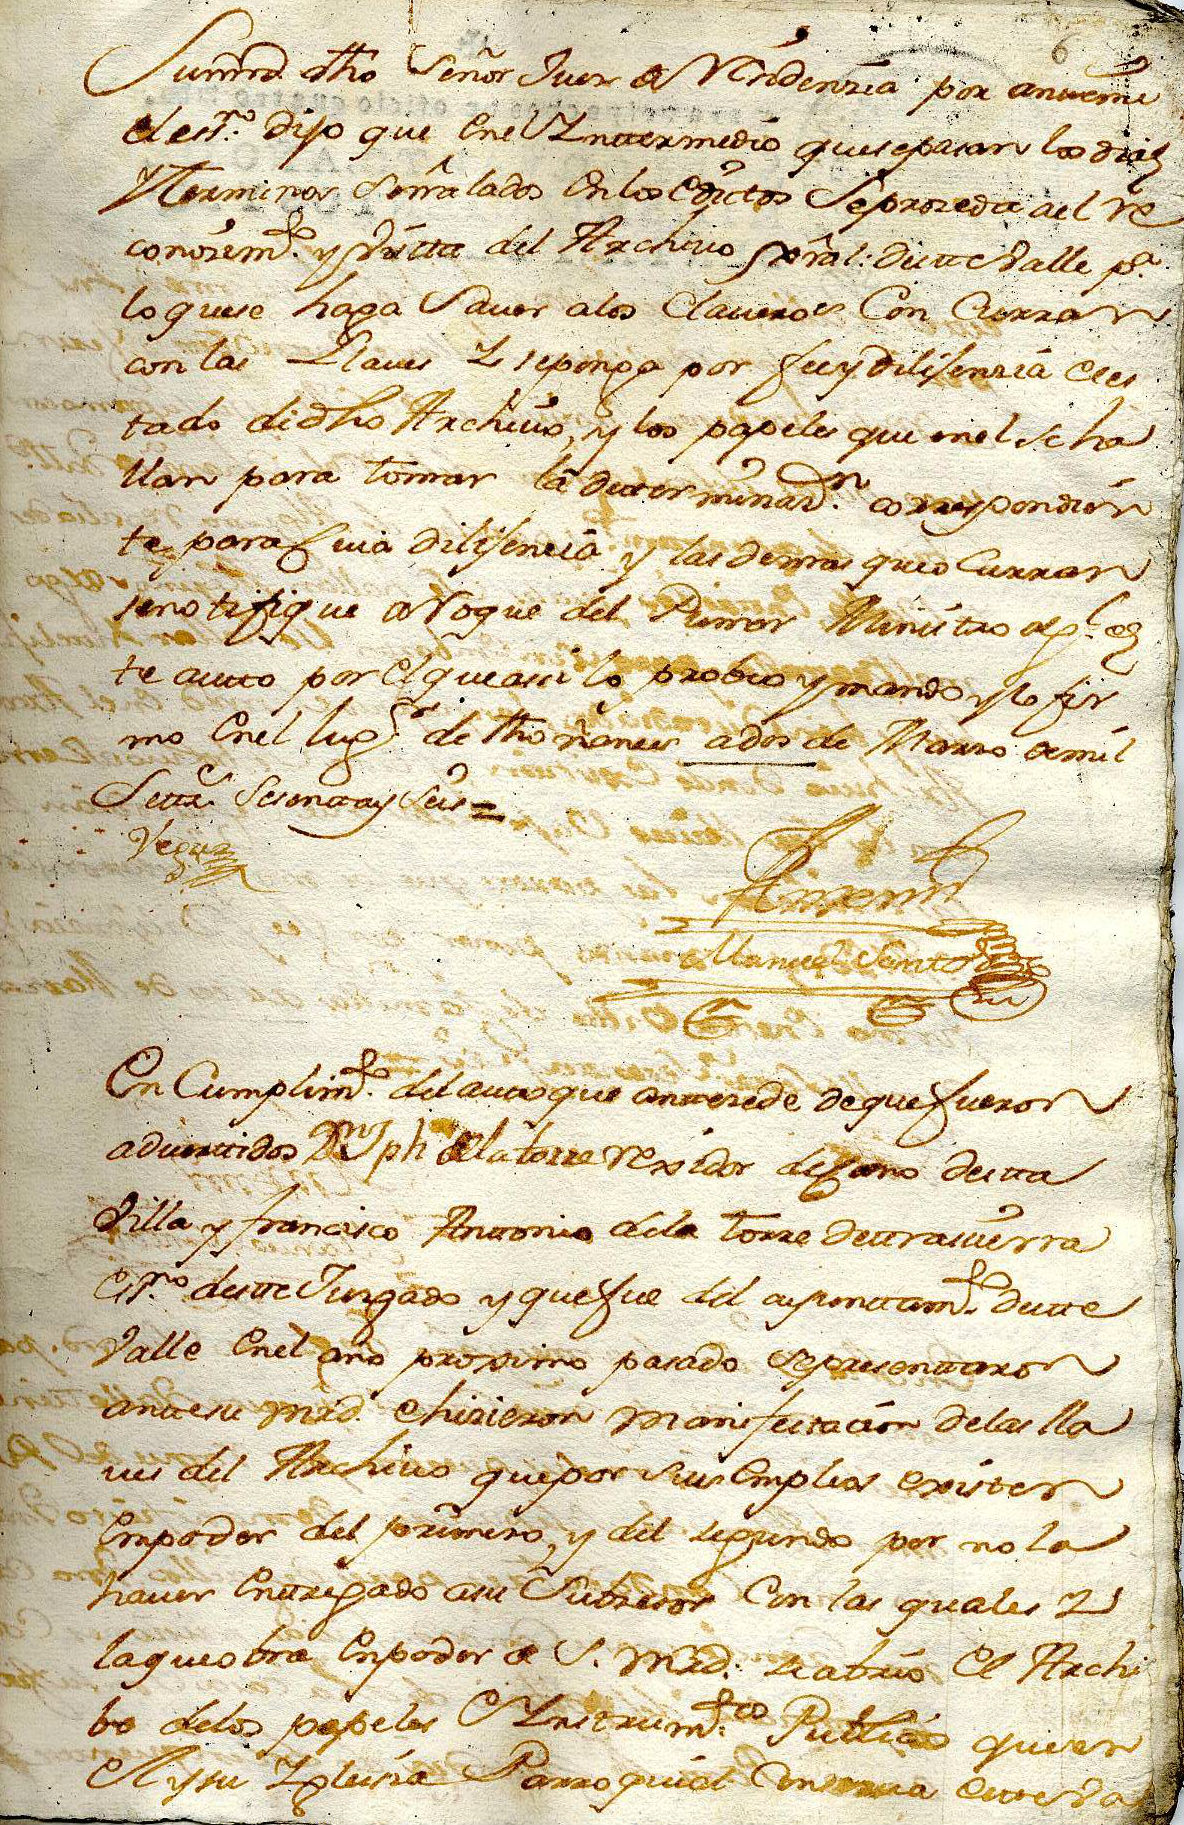 6
Sumrd. dho Señor Juez de Residenzia por antemi
el esno. dijo que en el Yntermedio que se pasan los dias
y terminos señalados en los edictos se prozeda a el re
conozimto. y Visitta del Archivo Gral. deste Valle pa.
lo que se haga Saver a los Claveros Concurran
con las Llaves Y se ponga por fee y dilijenzia el es
tado de dho Archivo, y los papeles que en el se ha
llan para tomar la determinazn. correspondien
te, para cuia dilijencia y las demas que ocurran
se notifique a Roque del Primer Ministro alg.l es
te autto por el que assi lo probeo y mando y lo fir
mo en el lugr. de dho a dos de Marzo de mil
Settz. Sesenta y Seis =
Manuel Santos
En Cumplimto. del auto que antezede de que fueron
adverttidos Dn. Jph de la torre rexidor decano desta
Villa y francisco Antonio de la torre de trasvierra
esno. deste Juzgado y que fue del aiuntamto. deste
Valle en el año proximo pasado se presentaron
ante su mrd. e hizieron manifestacion de las lla
ves del Archivo que por sus empleos existen
en poder del primero, y del segundo por no la
haver entregado a su Subzesor Con las quales Y
la que obra en poder de S. mrd. se abrio el Archi
bo de los papeles e Ynstrumtos. Publicos que en
el y su Yglesia Parroquial